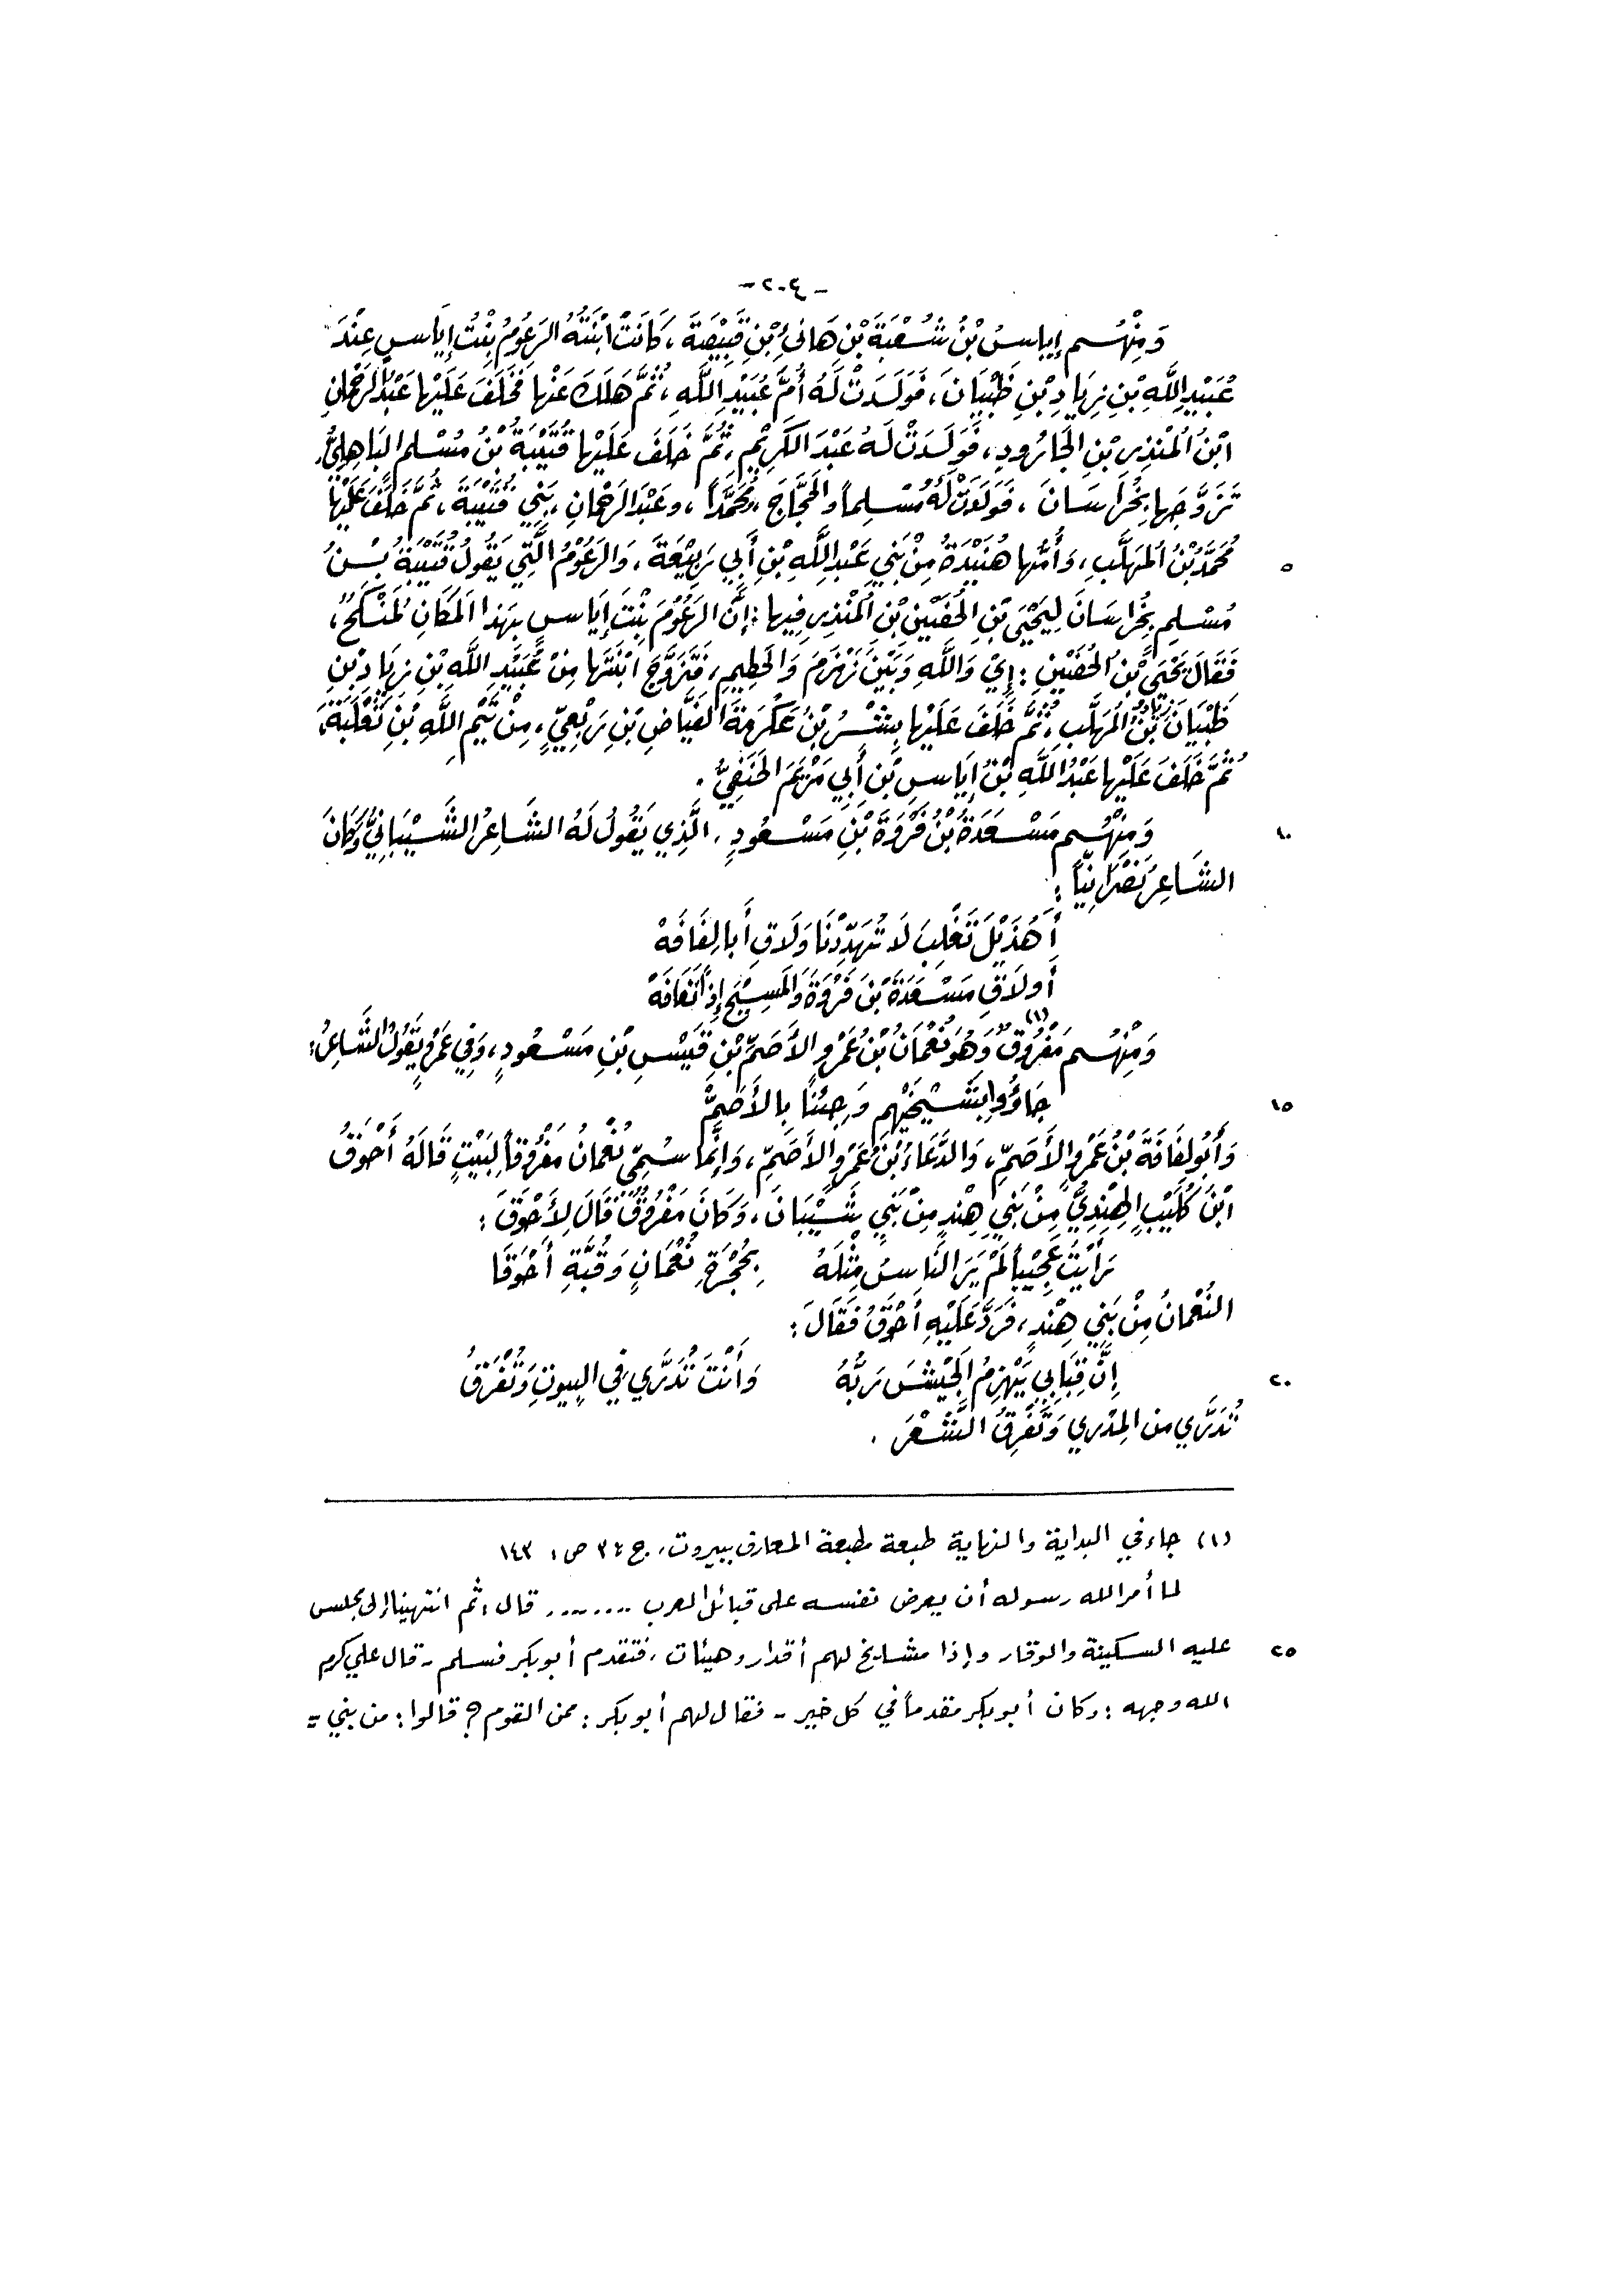 - ٢٠٤ -
وَمِنْهُم إِيَاسُ بْنُ شُعْبَةَ بْنِ هَانِئِ بْنِ قَبِيْصَةَ، كَانَتْ ابْنَتُهُ الرَعُومُ بِنْتُ إِيَاسٍ عِنْدَ
عُبَيْدِ اللَّهِ بْنِ زِيَادِ بْنِ ظَبْيَانَ، فَوَلَدَتْ لَهُ أُمَّ عُبَيْدِ اللَّهِ، ثُمَّ هَلَكَ عَنْهَا فَخَلَفَ عَلَيْها عَبْدُ الرَحْمانِ
ابْنُ المُنْذِرِ بْنِ الجَارُودِ، فَوَلَدَتْ لَهُ عَبْدَ الكَرِيْمِ، ثُمَّ خَلَفَ عَلَيْها قُتَيْبَةُ بْنُ مُسْلِمٍ البَاهِلِيُّ،
تَزَوَّجَها بِخُرَاسَانَ، فَوَلَدَتْ لَهُ مُسْلِماً والحَجَّاجَ، ومُحَمَّداً، وعَبْدَ الرَحْمانِ، بَنِي قُتَيْبَةَ، ثُمَّ خَلَفَ عَلَيْها
مُحَمَّدُ بْنُ المُهَلَّبِ، وَأُمُّها هُنَيْدَةُ مِنْ بَنِي عَبْدِ اللَّهِ بْنِ أَبِي رَبِيْعَةَ، وَالرَعُوْمُ الَّتِي يَقُولُ قُتَيْبَةُ بْنُ ٥
مُسْلِمٍ بِخُرَاسَانَ لِيَحْيَى بْنِ الحُضَيْنِ بْنِ المُنْذِرِ فِيها: إِنَّ الرَعُوْمَ بِنْتَ إِيَاسٍ بِهَذا المَكَانِ لَمَنْكَحٌ،
فَقَالَ يَحْيَى بْنُ الحُضَيْنِ: إِيْ وَاللَّهِ وَبَيْنَ زَمْزَمَ وَالحَطِيمِ، فَتَزَوَّجَ ابْنَتَها مِنْ عُبَيْدِ اللَّهِ بْنِ زِيَادِ بْنِ
ظَبْيَانَ زِيَادُ بْنُ المُهَلَّبِ، ثُمَّ خَلَفَ عَلَيْها بِشْرُ بْنُ عِكْرِمَةَ الفَيَّاضِ بْنِ رِبْعِيٍّ، مِنْ تَيْمِ اللَّهِ بْنِ ثَعْلَبَةَ،
ثُمَّ خَلَفَ عَلَيْها عَبْدُ اللَّهِ بْنُ إِيَاسِ بْنِ أَبِي مَرْيَمَ الحَنَفِيُّ.
وَمِنْهُم مَسْعَدَةُ بْنُ فَرْوَةَ بْنِ مَسْعُودٍ، الَّذِي يَقُولُ لَهُ الشَاعِرُ الشَيْبَانِيُّ وَكَانَ ١٠
الشَاعِرُ نَصْرَانِيّاً:
أَهُذَيْلَ تَغْلِبَ لَا تُهَدِّدْنَا وَلَاقِ أَبا لِفَافَهْ
أَو لَاقِ مَسْعَدَةَ بْنَ فَرْوَةَ وَالمَسِيْحِ إِذاً تَعَافَهْ
وَمِنْهُم مَفْرُوقٌ(١) وَهُوَ نُعْمَانُ بْنُ عَمْرٍو الأَصَمِّ بْنِ قَيْسِ بْنِ مَسْعُودٍ، وَفِي عَمْرٍو يَقُولُ الشَاعِرُ:
جَاؤُوا بِشَيْخَيْهِم وَجِئْنَا بِالأَصَمّْ ١٥
وَأَبُو لِفَافَةَ بْنُ عَمْرٍو الأَصَمِّ، وَالدَّعَاءُ بْنُ عَمْرٍو الأَصَمِّ، وَإِنَّمَا سُمِّيَ نُعْمَانُ مَفْرُوْقاً لِبَيْتٍ قَالَهُ أَحْوَقُ
ابْنُ كُلَيْبٍ الهِنْدِيُّ مِنْ بَنِي هِنْدٍ مِنْ بَنِي شَيْبَانَ، وَكَانَ مَفْرُوْقٌ قَالَ لِأَحْوَقَ:
رَأَيْتُ عَجِيْباً لَمْ يَرَ النَاسُ مِثْلَهُ بِحُجْرَةِ نُعْمَانٍ وَقُبَّةِ أَحْوَقَا
النُعْمَانُ مِنْ بَنِي هِنْدٍ، فَرَدَّ عَلَيْهِ أَحْوَقُ فَقَالَ:
إِنَّ قِبَابِي يَهْزِمُ الجَيْشَ رَبُّهُ وَأَنْتَ تُدَرَّي فِي البِيوتِ وَتُفْرَقُ ٢٠
تُدَرَّي من المِدْرِي وَتُفَرِقُ الشَّعْرَ.
(١) جاء في البداية والنهاية طبعة مطبعة المعارف ببيروت، ج: ٣ ص: ١٤٣
لما أمر الله رسوله أن يعرض نفسه على قبائل العرب ........ قال: ثم انتهينا إلى مجلس
عليه السكينة والوقار وإذا مشايخ لهم أقدار وهيئات، فتقدم أبو بكر فسلم - قال علي كرم ٢٥
الله وجهه: وكان أبو بكر مقدماً في كل خير - فقال لهم أبو بكر: ممن القوم؟ قالوا: من بني =